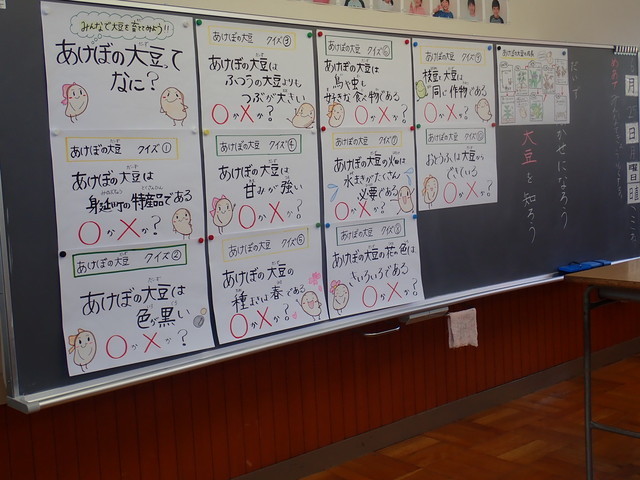 みんなで大豆を育ててみよう!!
あけぼの大豆って
なに?
あけぼの大豆 クイズ①
あけぼの大豆は
身延町の特産品である
○か×か?
あけぼの大豆 クイズ②
あけぼの大豆は
色が黒い
○か×か?
あけぼの大豆 クイズ③
あけぼの大豆は
ふつうの大豆よりも
つぶが大きい
○か×か?
あけぼの大豆 クイズ④
あけぼの大豆は
甘みが強い
○か×か?
あけぼの大豆 クイズ⑤
あけぼの大豆の
種まきは春である
○か×か?
あけぼの大豆 クイズ⑥
あけぼの大豆は
鳥や虫も
好きな食べ物である
○か×か?
あけぼの大豆 クイズ⑦
あけぼの大豆の畑は
水まきがたくさん
必要である
○か×か?
あけぼの大豆 クイズ⑧
あけぼの大豆の花の色は
いろいろである
○か×か?
あけぼの大豆 クイズ⑨
枝豆と大豆は
同じ作物である
○か×か?
あけぼの大豆 クイズ⑩
おとうふは大豆から
できている
○か×か?
あけぼの大豆の成長
だいず
かせになろう
大豆を知ろう
月
日
曜日